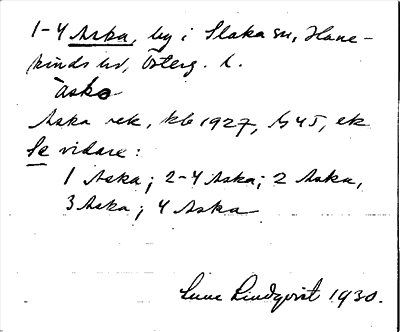 1-4 Aska, by i Slaka sn, Hane-
kinds hd, Österg. l.
àska
Aska rek, kb 1927, h 45, ek
Se vidare:
1 Aska; 2-4 Aska; 2 Aska,
3 Aska; 4 Aska
Sune Lindqvist 1930.